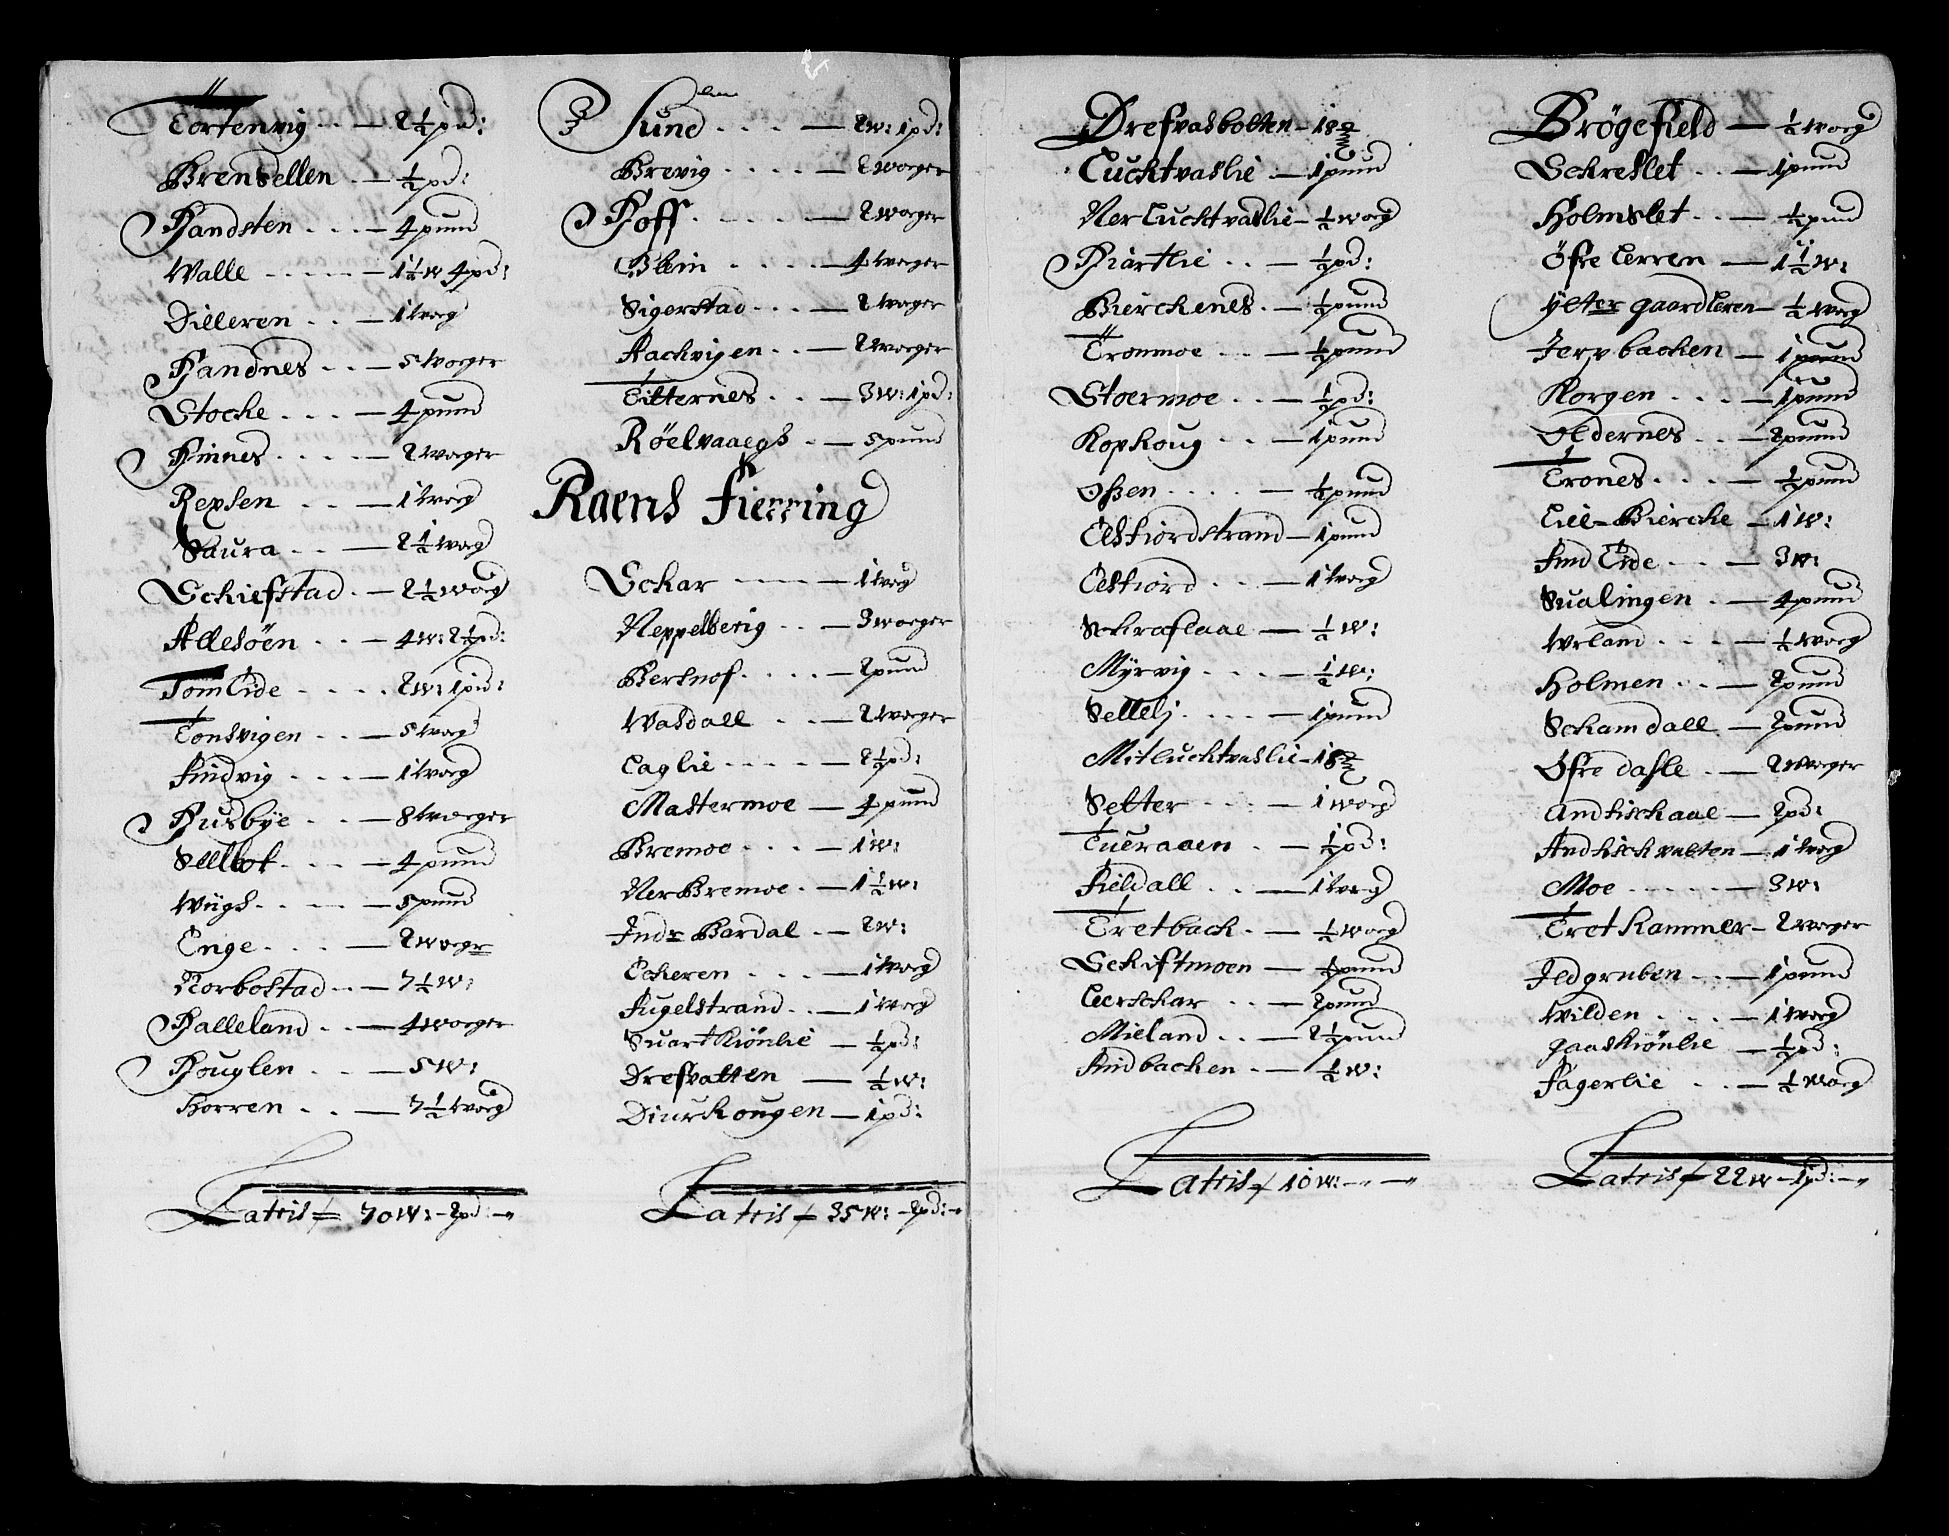 Tortenvig . . — 2½pd:
Brensellen . — ½pd:
Handsten . . . — 4pund
Walle - - - - — 1½w 4pd:
Dilleren . . — 1 Woeg
Handnes . . — 5 Woeger
Stocke . . . — 4pund
Hinnes . . . . — 2 Woeger
Rexsen . . — 1 Woeg
Saura . . — 2½ Woeg
Schiefstad . — 2½ Woeg
Allesöen . . . — 4w: 2½pd:
Tom Eide - - - . 2w: 1pd:
Tonsvigen . . — 5 Woeg
Findvig . . . — 1 Woeg
Husbÿe . . . — 8 Woeger
Sellbot . . . — 4 pund
Wiigs . . . — 5pund
Enge . . . — 2 Woeger
Norbostad . . — 7½w:
Halleland . . — 4 Woeger
Houglen . . . — 5w:
Horren . . . — 7½ Woeg
Latris 70w: - 2pd: -
Sund . . . . — 2w: 1pd:
Brevig . . . . — 2 Woeger
Hoff . . . . — 2 Woeger
Blein . . . . — 4 Woeger
Sigerstad . . . — 2 Woeger
Aachvigen . . — 2 Woeger
Titternes . . . — 3w: 1pd:
Röelvaaegs . — 5pund
Raens Fierring
Schar - - - — 1 Woeg
Neppelberig . . — 3 Woeger
Bersnof . . . . — 2pund
Wasdall . . — 2 Woeger
Laglie - - - - — 2½pd:
Mastermoe — 4 pund
Bremoe . . . — 1w:
Ner Bremoe . — 1½w:
Indr Bardal . — 2w:
Eckeren . . . — 1 Woeg
Fugelstrand . . — 1 Woeg
Suart Kiönlie — ½pd:
Drefvatten — ½w:
Diurkougen — 1pd:
Latris 35w: - 2pd: -
Drefvasbotten — 18
Lucktvaslie . — 1pund
Ner Lucktvaslie — ½ Woeg
Hiartlie . . — ½pd:
Bierckenes . — ½pund
Tronmoe . . — ½pund
Stoermoe . . — ½pd:
Kopkoug . . — 1pund
Ossen . . . . — ½pund
Elsfiordstrand — 1pund
Elsfiord . . — 1 Woeg
Schraflaae — ½w:
Mÿrvig . . . — ½w:
Sellelj . . . — 1pund
Mitlucktvaslie — 18
Setter . . . — 1 Woeg
Tueraaen . — ½pd:
Fieldall . . — 1 Woeg
Tretback . — ½ Woeg
Schiftmoen — ½pund
Leerskar . . — 2pund
Mieland . . — 2½pund
Findbacken . — ½w:
Latris 10w: - -
Brögefield — ½ Woeg
Schreslet . . — 1pund
Holmslet . . — ½pund
Öfre Lerren — 1½w:
ÿtter gaardleren — ½ Woeg
Jerpbacken — 1pund
Korgen . . . — 1pund
Oldernes . . — 2pund
Trones . . . — ½pund
Lill-Biercke — 1w:
Find Eide . . . — 3w:
Sualingen . — 4pund
Wrland . . . — ½ Woeg
Holmen . . — 2pund
Schamdall . — 2pund
Öfre dahle . — 2 Woeger
Andfischaae — 2pd:
Andfischvatten — 1 Woeg
Moe . . . . — 3w:
Tretkammer — 2 Woeger
Ildgruben . . — 1pund
Wilden . . . — 1 Woeg
gaaskiönlie — ½pd:
Fagerlie . . — ½ Woeg
Latris 22w - 1pd: -